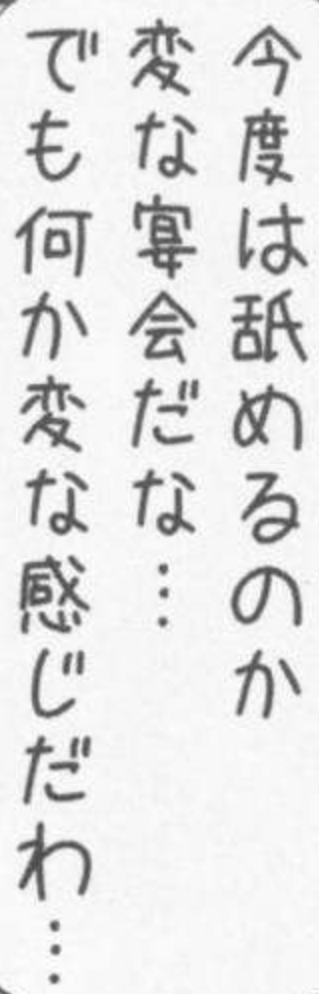 今度は舐めるのか
変な宴会だな…
でも何か変な感じだわ…